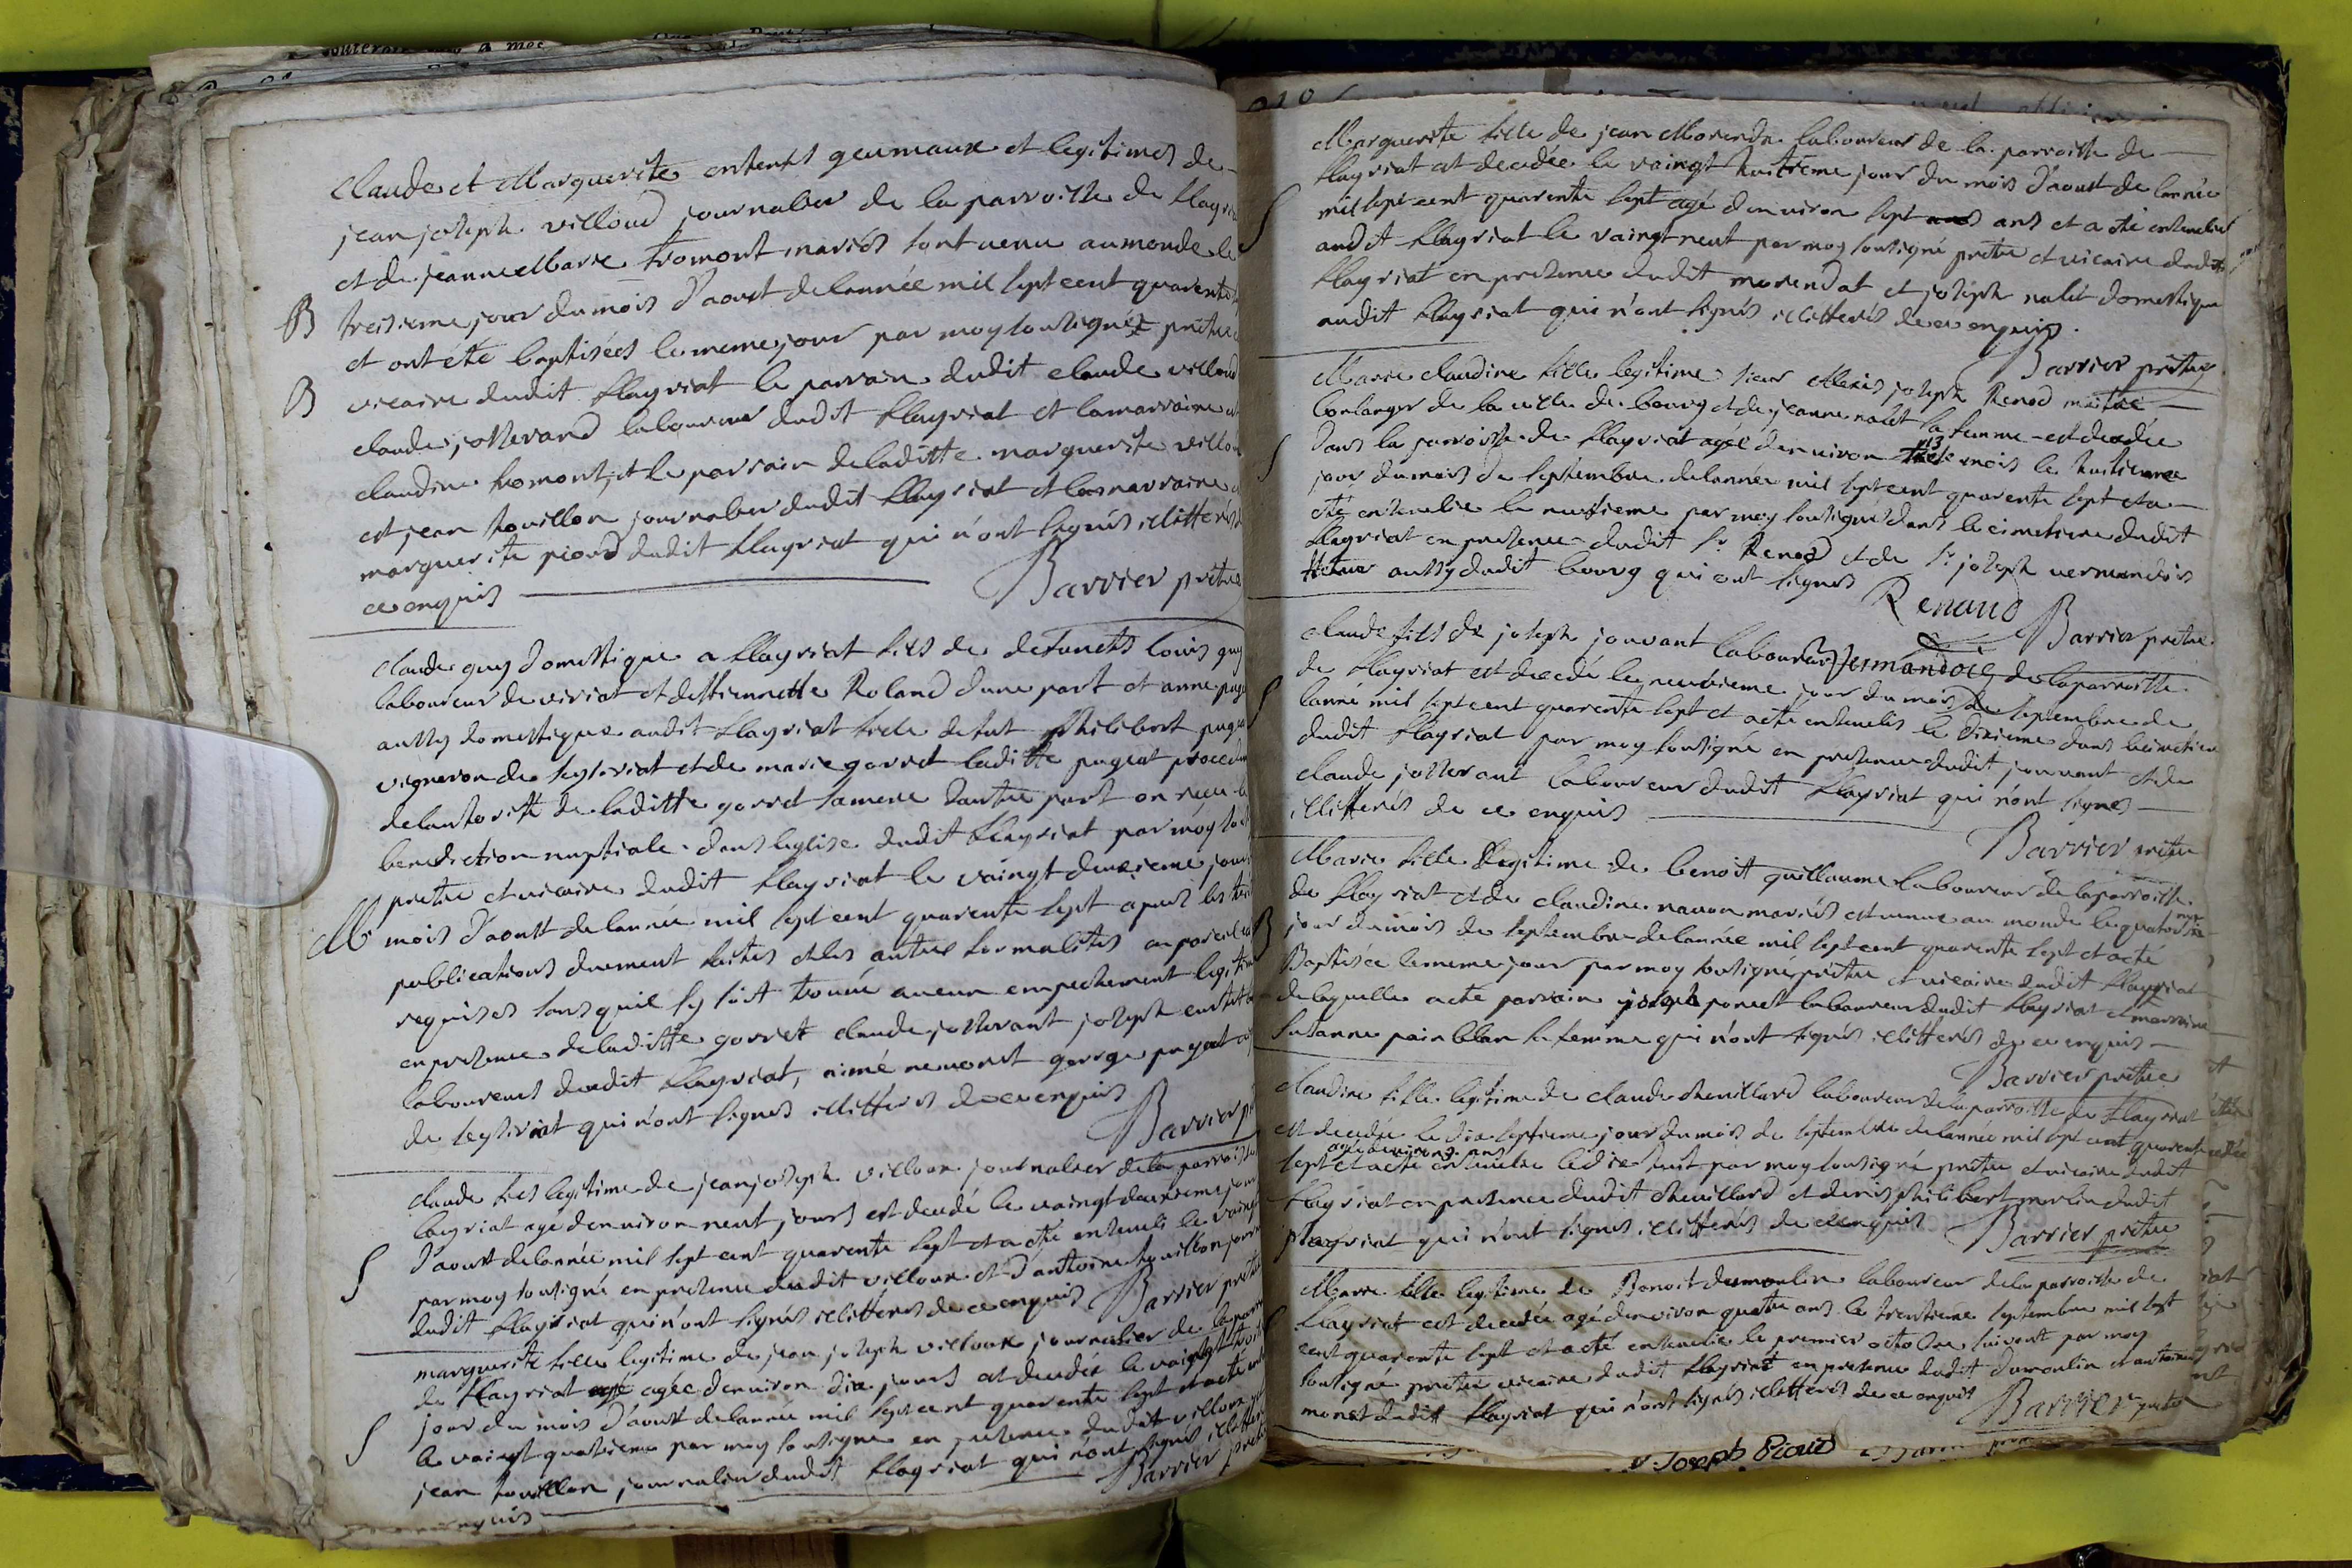 Claude et Marguerite enfents geumaux et legitimes de
jean joseph villoud journalier de la parroisse de flayriat
et de jeanne Marie fromont mariés sont venu au monde le
B treisieme jour du mois d'aoust de lannée mil sept cent quarente
et ont été baptisées le meme jour par moy sousigné pretre
B vicaire dudit flayriat le parrain dudit claude villoud
claude josserand laboureur dudit flayriat et la marraine
claudine fromont, et le parrain de laditte marguerite
est jean touillon journalier dudit flayriat et la marraine
marguerite piond dudit flayriat qui n'ont signés illitterés
ce enquis
Barrier pretre
claude guy domestique a flayriat fils de defuncts louis guy
laboureur de viriat et destiennette Roland dune part et anne
aussy domestique audit flayriat fille de fut philibert
vigneron de seyseriat et de marie gorret laditte pugeat
de lautorité de laditte gorret sa mere dautre part on reçu
benediction nuptiale dans leglise dudit flayriat par moy
pretre et vicaire dudit flayriat le vaingt deuxieme jour
M mois d'aoust de lannée mil sept cent quarente sept apres les
publications duement faites et les autres formalités
requises sans quil sy soit trouvé aucun empechement legitime
en presence de laditte gorret claude josserant joseph
laboureurs dudit flayriat, aimé george pugeat
de seyseriat qui n'ont signés illitterés de ce enquis
Barrier
claude fils legitime de jean joseph villoux journalier de la parroisse
layriat agé denviron neuf jours est decedé le vaingt deuxieme jour
S d'aoust de lannée mil sept cent quarente sept et a été enseveli le
par moy sousigné en presence dudit villoux et d'antoine touillon
dudit flayriat qui n'ont signés illitterés de ce enquis Barrier pretre
marguerite fille legitime de jean joseph villoux journalier de la
de flayriat agée denviron dix jours est decedée le vaingt
S jour du mois d'aoust de lannée mil sept cent quarente sept et a été
le vaingt quatrieme par moy sousigné en presence dudit villoux
jean touillon journalier dudit flayriat qui n'ont signés
Barrier
enquis
Marguerite fille de jean Morenda laboureur de la parroisse de
flayriat est decedée le vaingt huitieme jour du mois d'aoust de lannée
S mil sept cent quarente sept agé denviron sept ans et a été ensevelie
audit flayriat le vaingt neuf par moy sousigné pretre et vicaire dudit
flayriat en presence dudit morendat et joseph nalet domestique
audit flayriat qui n'ont signés illitterés de ce enquis.
Barrier pretre
Marie claudine fille legitime sieur Alexis joseph Renod maitre
boulanger de la ville de bourg et de jeanne nalet sa femme est decedée
S dans la parroisse de flayriat agée denviron 13 mois le huitieme
jour du mois de septembre de lannée mil sept cent quarente sept et a
été ensevelie le neufieme par moy sousigné dans le cimetiere dudit
flayriat en presence dudit Sr Renod et de Sr joseph vermandois
aussy dudit bourg qui ont signés
Renaud Barrier pretre
Vermandois
claude fils de joseph jouvant laboureur de la parroisse
de flayriat est decedé le neuvieme jour du mois de septembre de
S lanne mil sept cent quarente sept et a été ensevelis le dixieme dans le cimetiere
dudit flayriat par moy sousigné en presence dudit jouvant et de
claude josserant laboureur dudit flayriat qui n'ont signes
illitterés de ce enquis
Barrier pretre
Marie fille legitime de benoit guillaume laboureur de la parroisse
de flayriat et de claudine mariés est venue au monde le quatorzieme
B jour du mois de septembre de lannée mil sept cent quarente sept et a été
Baptisée le meme jour par moy sousigné pretre et vicaire dudit flayriat
de laquelle a été parrain joseph laboureur dudit flayriat et marraine
susanne pain blan sa femme qui n'ont signés illitterés de ce enquis
Barrier pretre
claudine fille legitime de claude chevillard laboureur de la parroisse de flayriat
est decedée le dix septieme jour du mois de septembre de lannée mil sept cent quarente
agé denviron 3 ans
sept et a été ensevelie le dix huit par moy sousigné pretre et vicaire dudit
flayriat en presence dudit chevillard et denis philibert morlin dudit
flayriat qui n'ont signes illitterés de ce enquis Barrier pretre
Marie fille legitime de Benoit dumoulin laboureur de la parroisse de
S flayriat est decedée agé denviron quatre ans le trentieme septembre mil sept
cent quarente sept et a été ensevelie le premier octobre suivant par moy
sousigne pretre vicaire dudit flayriat en presence dudit dumoulin et antoine
monet dudit flayriat qui n'ont signés illitterés de ce enquis Barrier pretre
Joseph Picaud